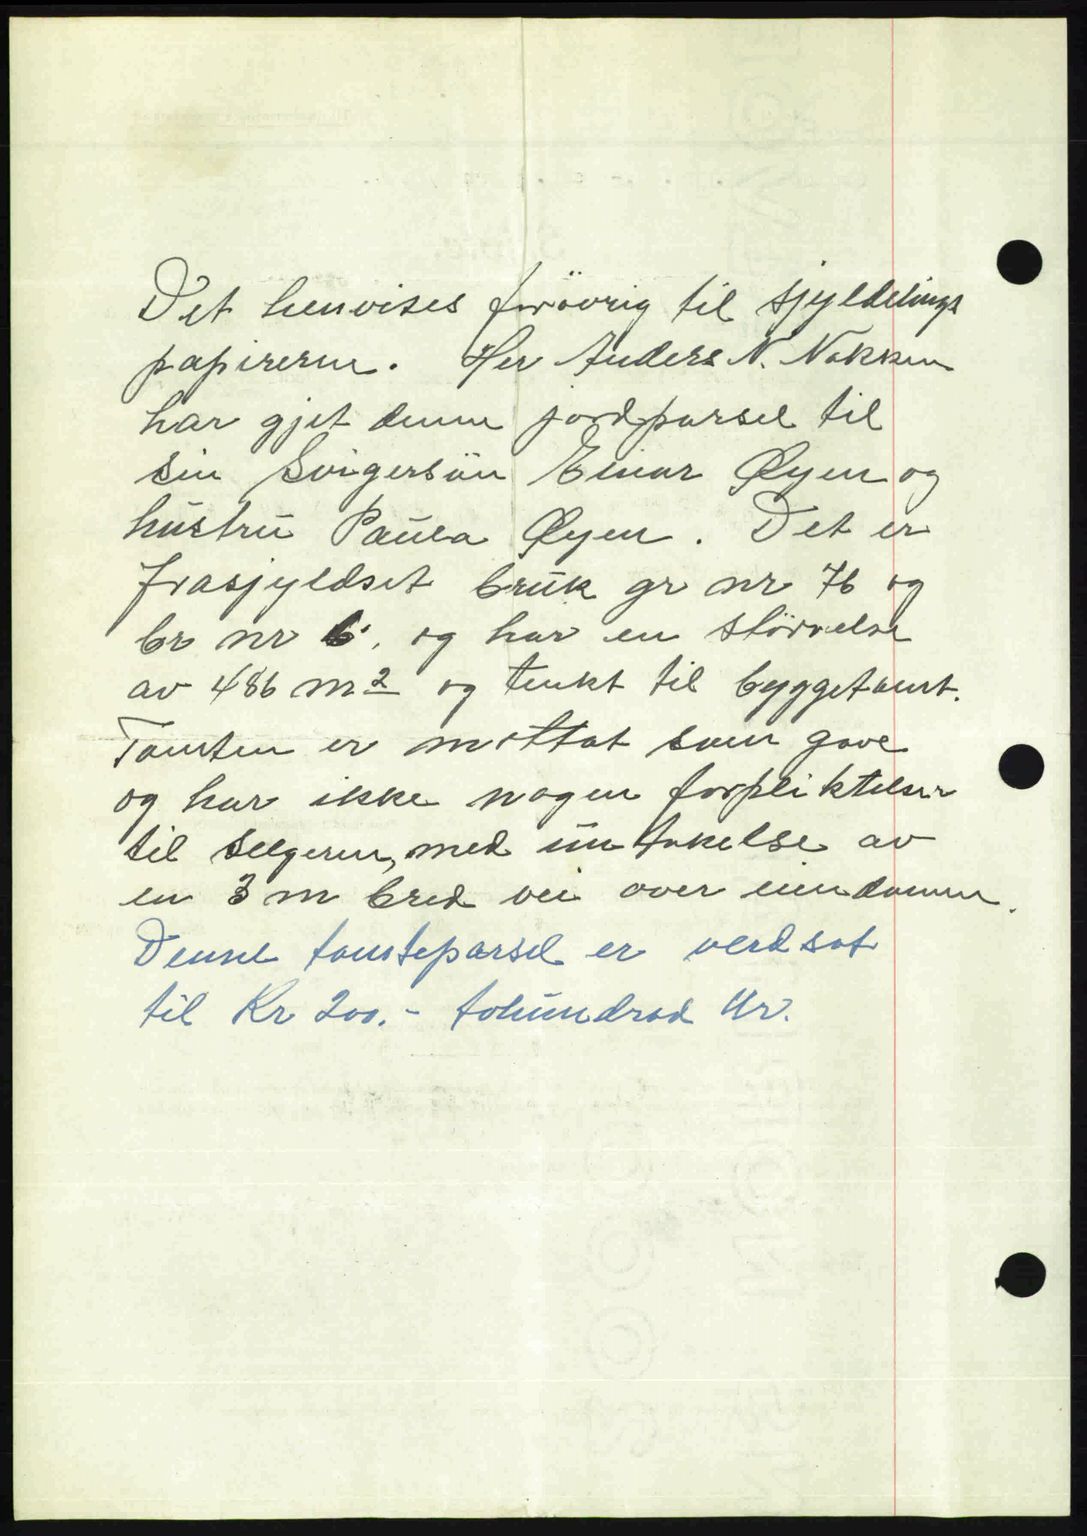 Det henvises forövrig til sjyldelings
papirerne. Her Anders N. Nakken
har gjet denne jordparsel til
sin Svigersön Einar Øyen og
hustru Paula Øyen. Det er
frasjyldset bruk gr nr 76 og
br nr 6. og har en störrelse
av 486 m2 og tenkt til byggetomt.
Tomten er mottat som gave
og har ikke nogen forpliktelser
til selgeren, med untakelse av
en 3 m bred vei over eiendomen.
Denne tomteparsel er verdsat
til Kr 200.- tohundrad Kr.